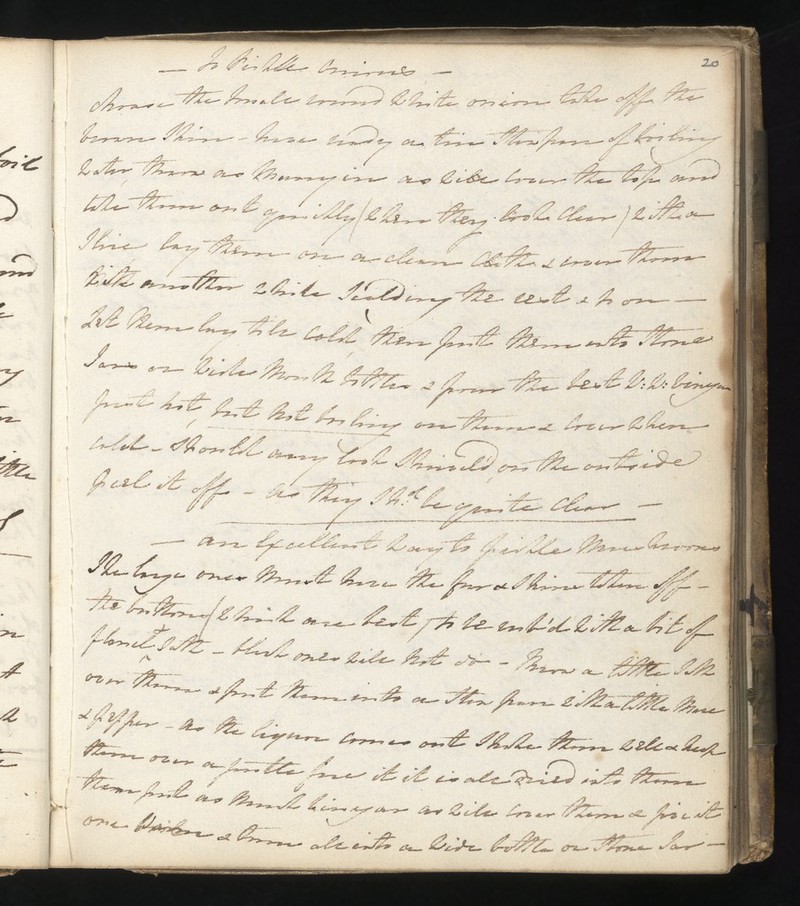 20
— To Pickle Onions —
Choose the Small round White onion take off the
brown Skin - have ready a tin Stewpan of boiling
Water, throw as Many in as Will Cover the top and
take them out quickly (When they look Clear) With a
Slice lay them on a clean Cloth & cover them
With another While Scalding the rest & so on —
Let them lay till Cold, then put them into Stone
Jars or Wide Mouth bottles & pour the best W: W: Vinegar
just hot, but Not boiling on them & Cover When
cold - Should any look Shriveld, on the outside
peel it off - as they Shd. be quite Clear —
— an Excellent Way to pickle Mushrooms
The large ones Must have the fur & Skin taken off -
the buttons (Which are best) to be rub'd With a bit of
flanel & Salt - black ones Will Not do - throw a little Salt
over them & put them into a Stew pan With a little Mace
& pepper - as the liquor comes out Shake them Well & keep
them over a gentle fire it it is all dried into them
then put as Much Vinegar as Will Cover them & give it
one & turn all into a Wide bottle or Stone Jar —